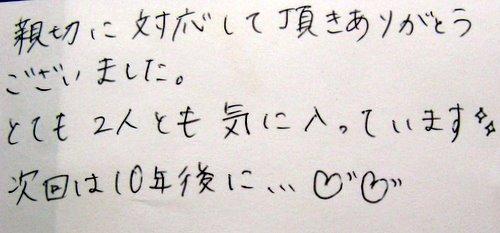 親切に対応して頂きありがとう
ございました。
とても2人とも気に入っています✨
次回は10年後に…♡〃♡〃